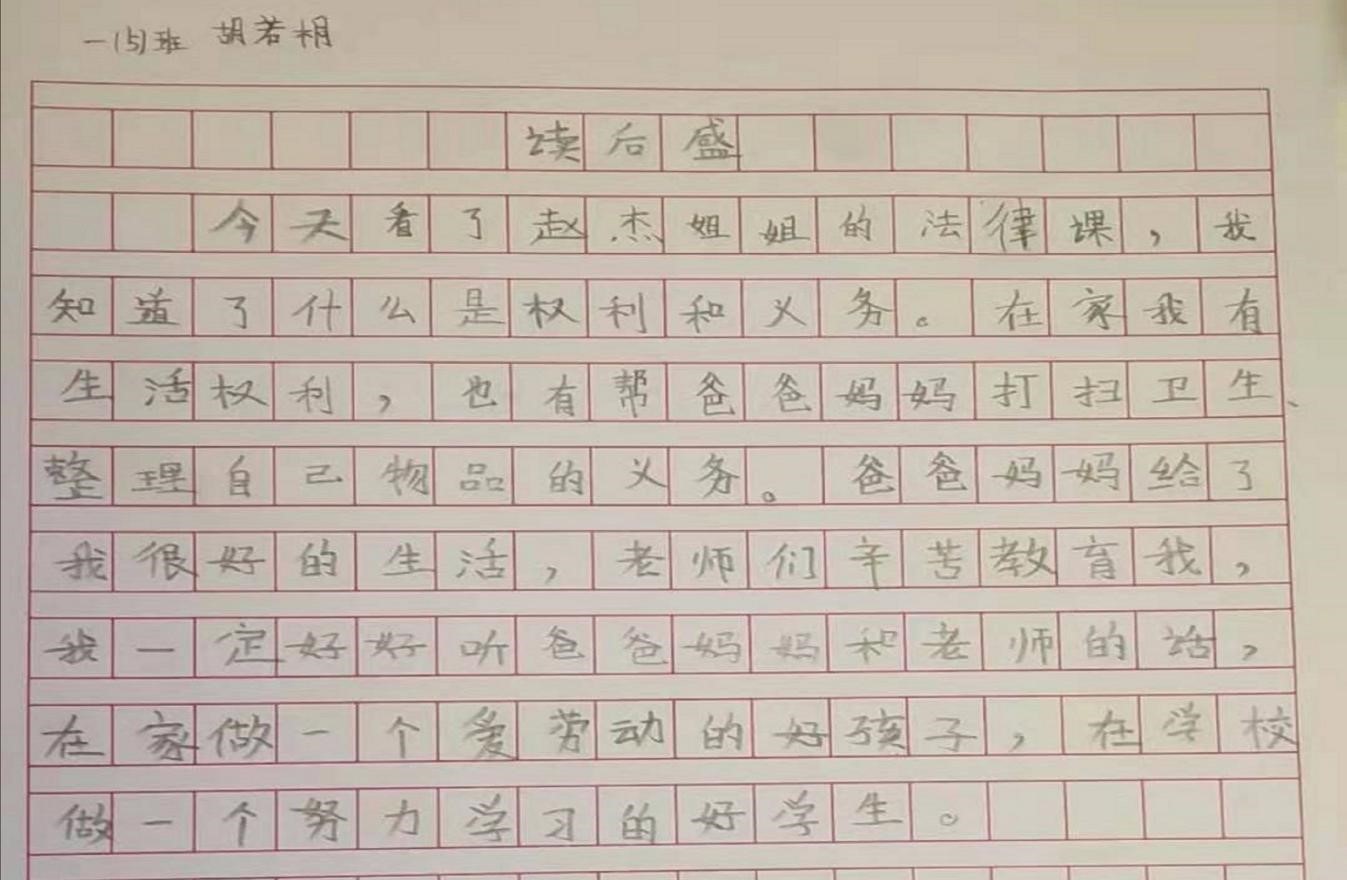 一(5)班 胡若相
读后盛
今天看了赵杰姐姐的法律课，我
知道了什么是权利和义务。在家我有
生活权利，也有帮爸爸妈妈打扫卫生、
整理自己物品的义务。爸爸妈妈给了
我很好的生活，老师们辛苦教育我，
我一定好好听爸爸妈妈和老师的话，
在家做一个爱劳动的好孩子，在学校
做一个努力学习的好学生。